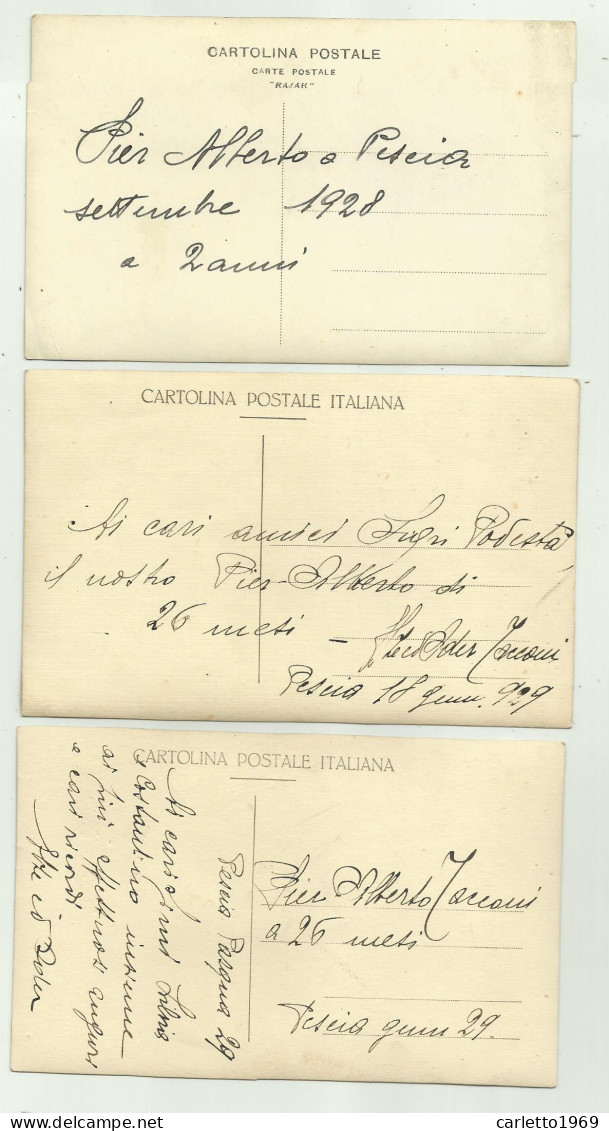 CARTOLINA POSTALE
CARTE POSTALE
"RAJAR"
Pier Alberto a Pescia
settembre 1928
a 2 anni
CARTOLINA POSTALE ITALIANA
Ai cari amici Sugri Podestà,
il nostro Pier Alberto di
26 mesi -
Ader Tacconi
Pescia 18 genn. 929
CARTOLINA POSTALE ITALIANA
Pescia Pasqua 29
Ai carissimi Silvia
e Costantino insieme
ai più affettuosi auguri
e cari ricordi
ed Ader
Pier Alberto Tacconi
a 26 mesi
Pescia genn 29.
carletto1969